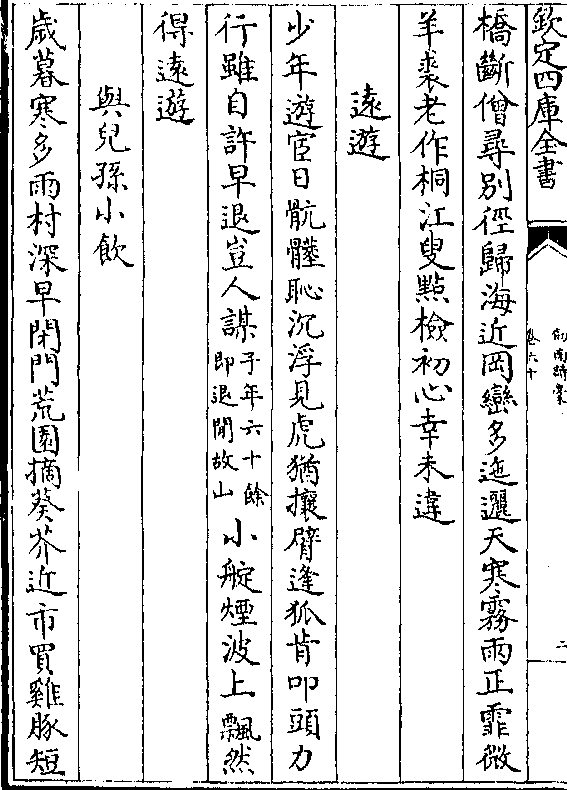 欽定四庫全書
劍南詩稾
卷六十
二
橋斷僧尋別徑歸海近岡巒多迤邐天寒霧雨正霏微
羊裘老作桐江叟點檢初心幸未違
遠遊
少年遊宦日骯髒恥沉浮見虎猶攘臂逢狐肯叩頭力
行雖自許早退豈人謀予年六十餘即退閒故山小艇煙波上飄然
得遠遊
與兒孫小飲
歲暮寒多雨村深早閉門荒園摘葵芥近市買雞豚短